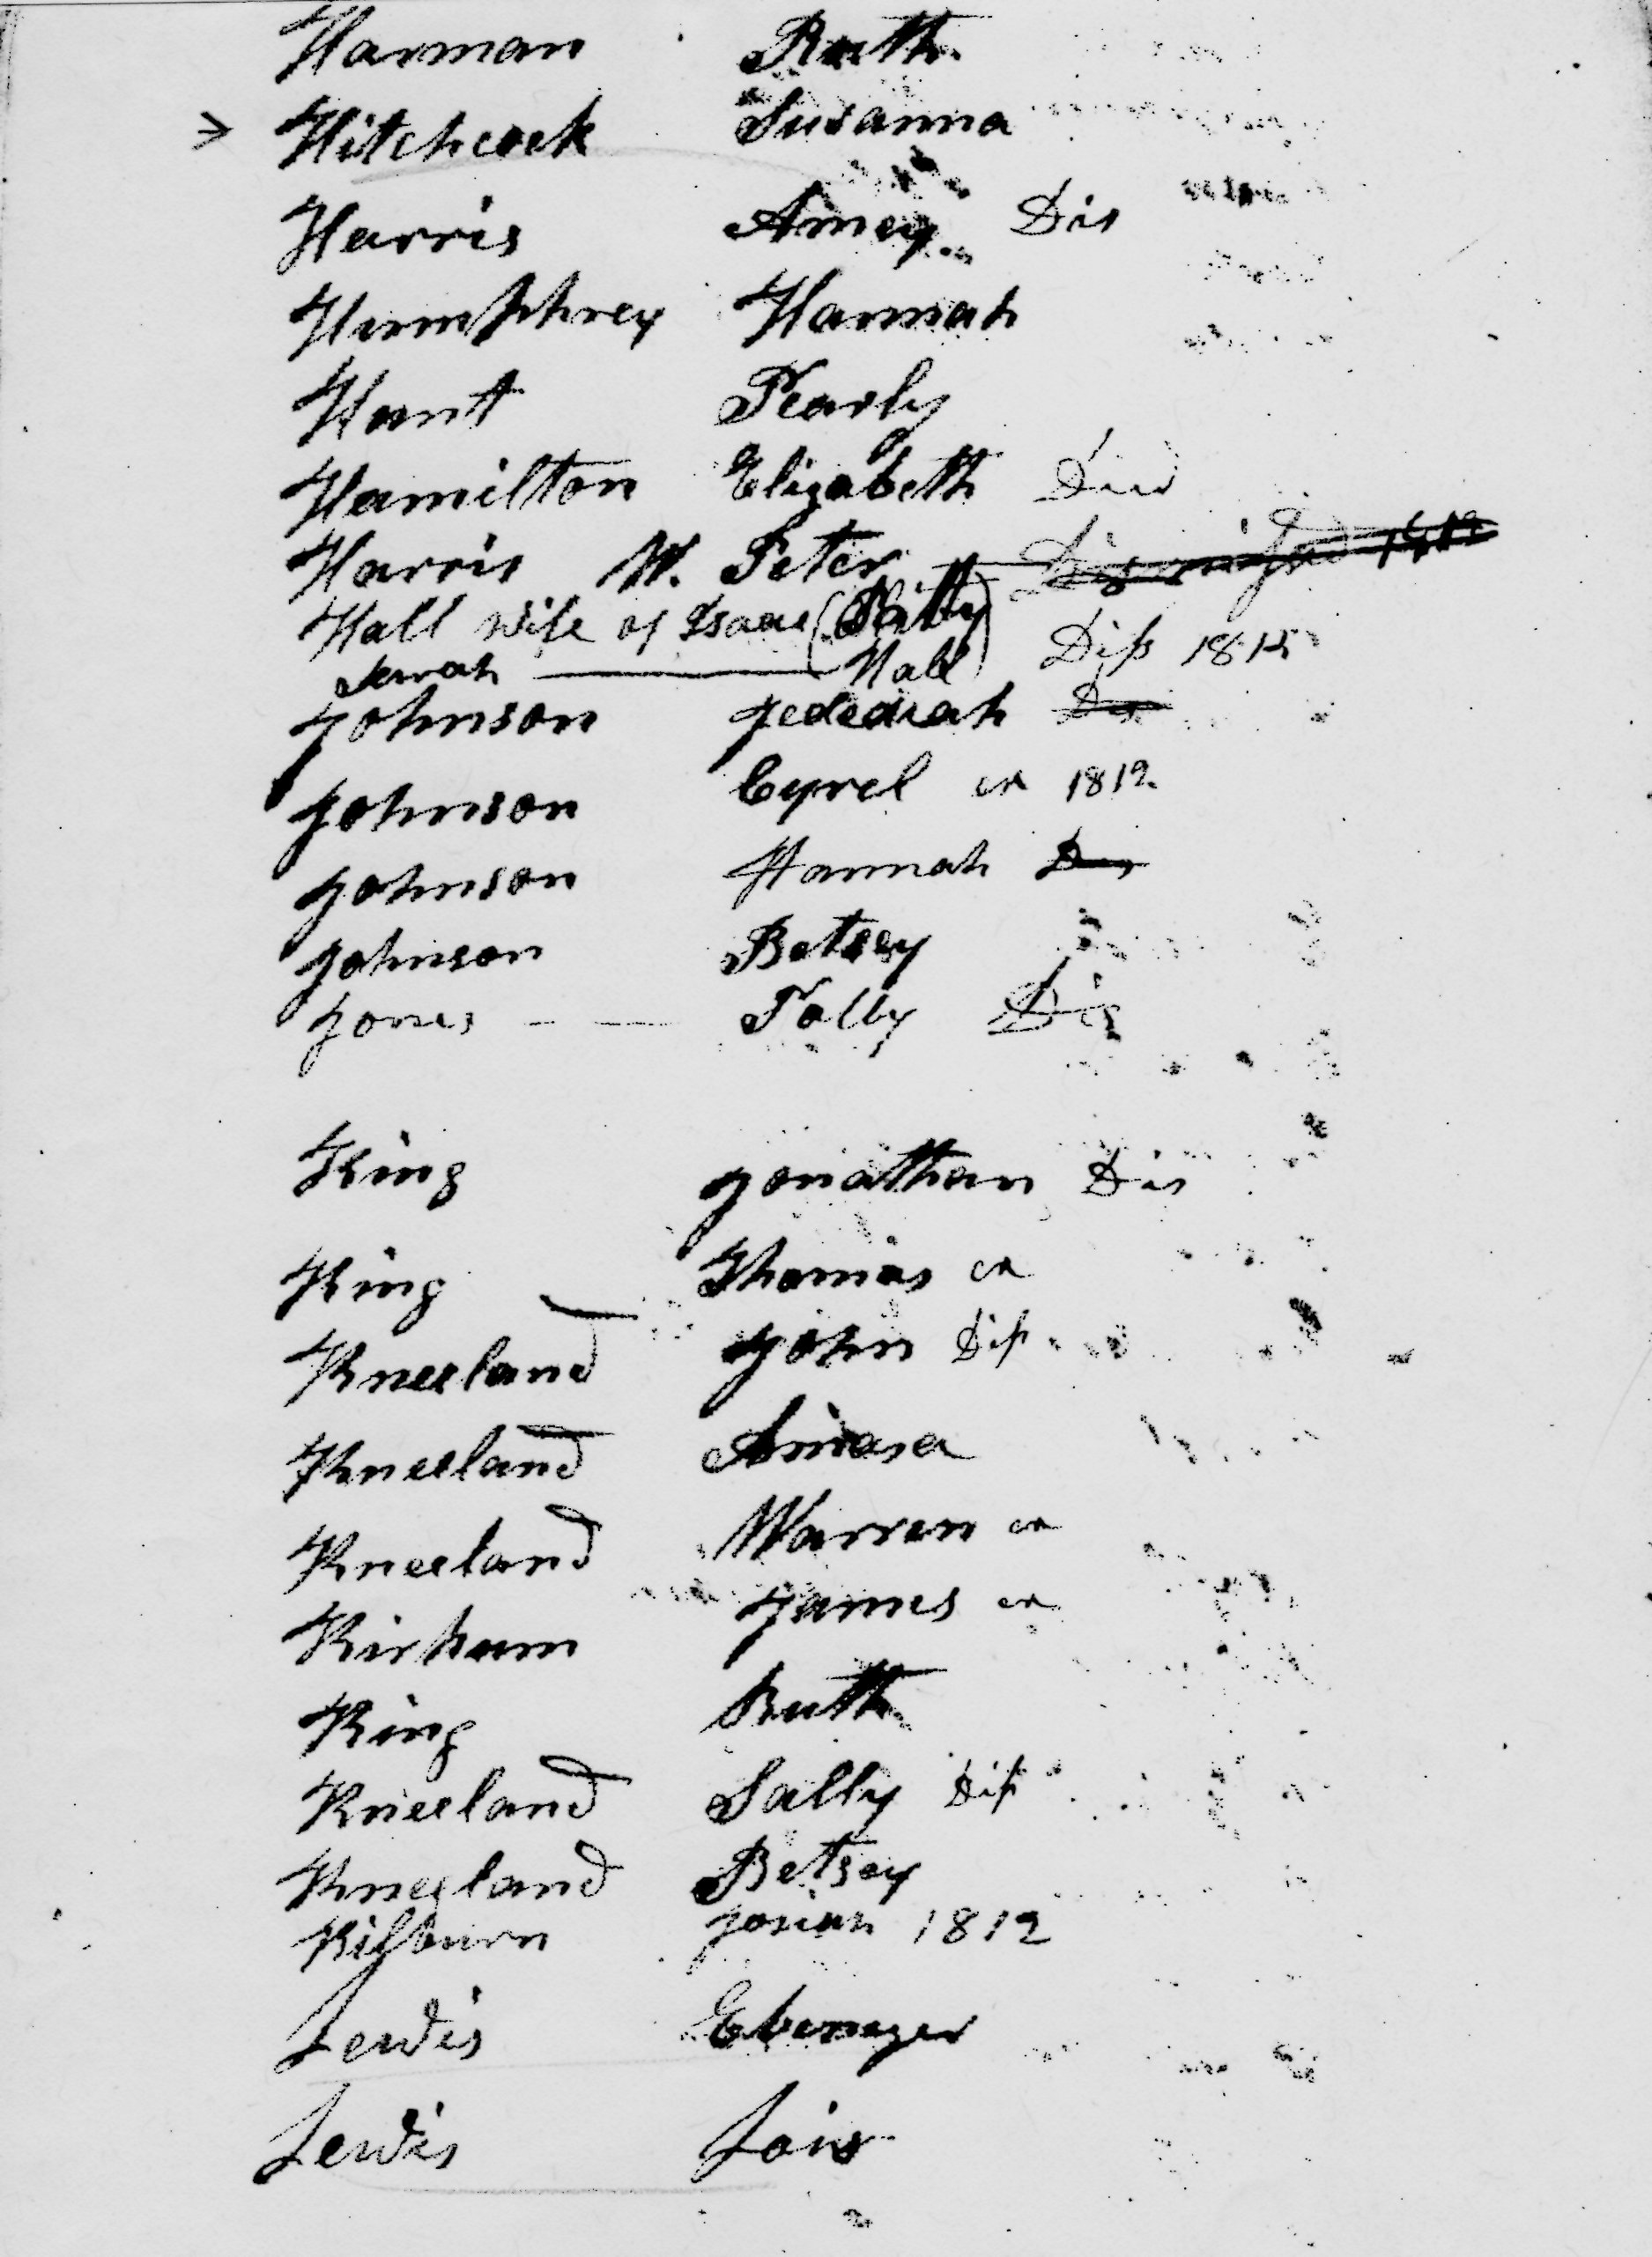 Harman Ruth
> Hitchcock Susanna
Harris Amey Dis
Humphrey Hannah
Hunt Pearly
Hamilton Elizabeth Died
Harris W. Peter Dismissed 1812
Hall wife of Isaac (Patty
Hall) Diss 1815
Johnson Jedediah Dis
Johnson Cyrel ex 1812
Johnson Hannah Dis
Johnson Betsey
Jones - — Polly Dis
King Jonathan Dis
King Thomas ex
Kneeland John Diss
Kneeland Amasa
Kneeland Warren ex
Kirham James ex
King Ruth
Kneeland Sally Diss
Kneeland Betsey
Kilbourn Josiah 1812
Lewis Ebenezer
Lewis Lois